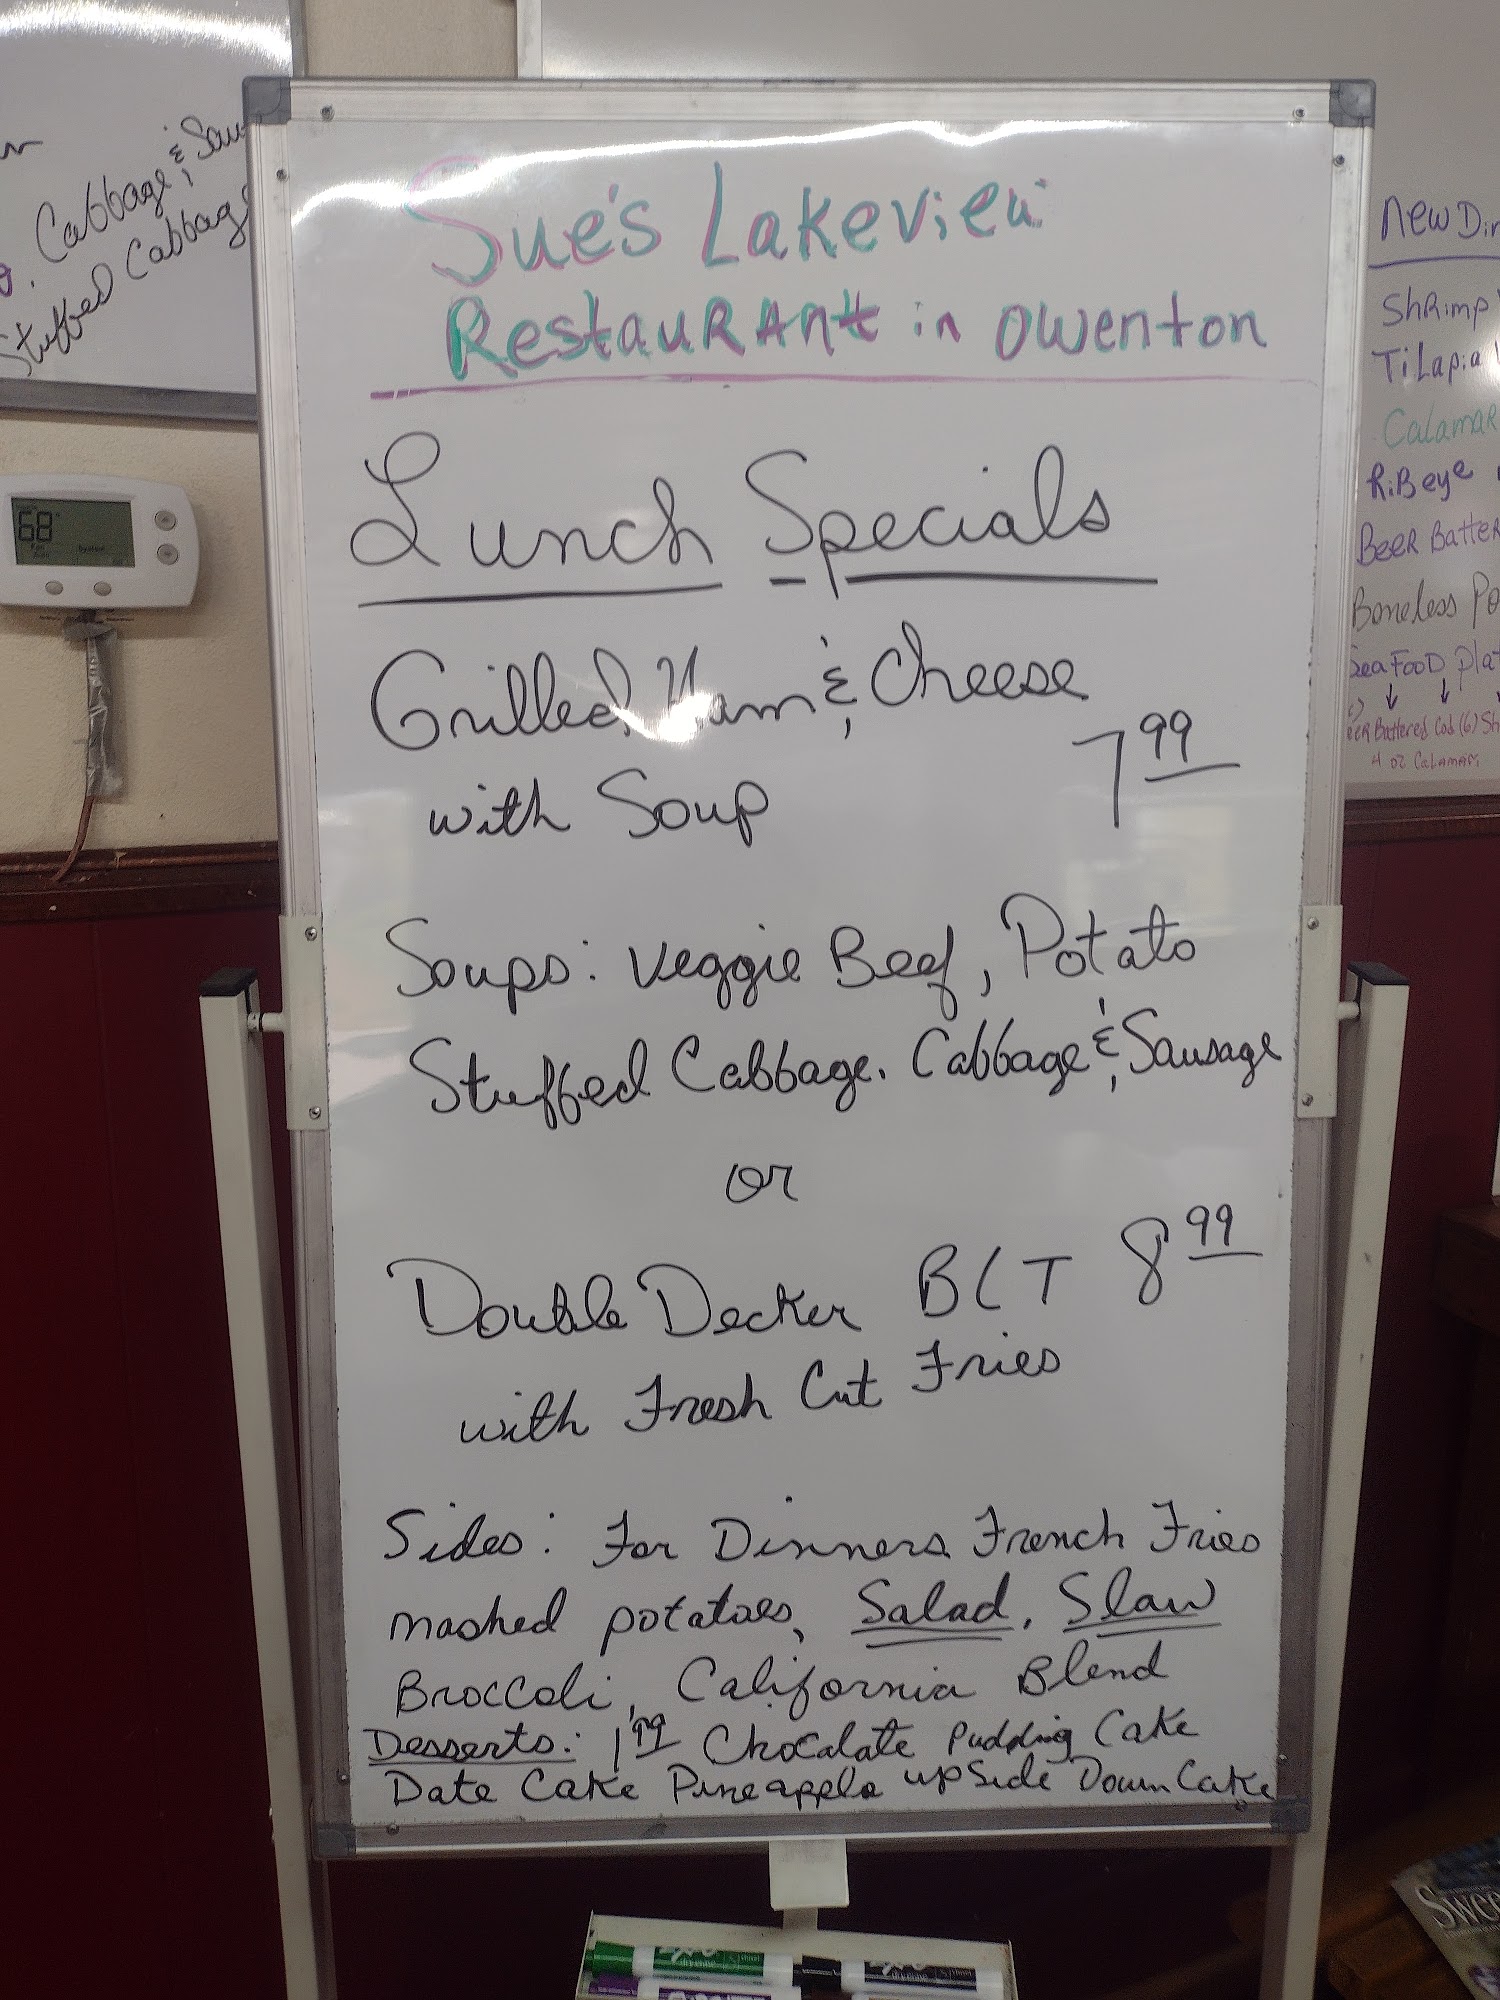 Cabbage & Sau
Stuffed Cabbag
68
Sue's Lakeview
Restaurant in Owenton
Lunch Specials
Grilled Ham & Cheese
with Soup 7 99
Soups: Veggie Beef, Potato
Stuffed Cabbage. Cabbage & Sausage
or
Double Decker BLT 8 99
with Fresh Cut Fries
Sides: For Dinners French Fries
mashed potatoes, Salad, Slaw
Broccoli, California Blend
Desserts: 1.99 Chocolate Pudding Cake
Date Cake Pineapple upside Down Cake
New Din
Shrimp
Tilapia
Calamar
RiBeye
Beer Batter
Boneless Po
Sea Food Plat
Beer Battered Cod (6) Sh
4 oz Calamari
Swee